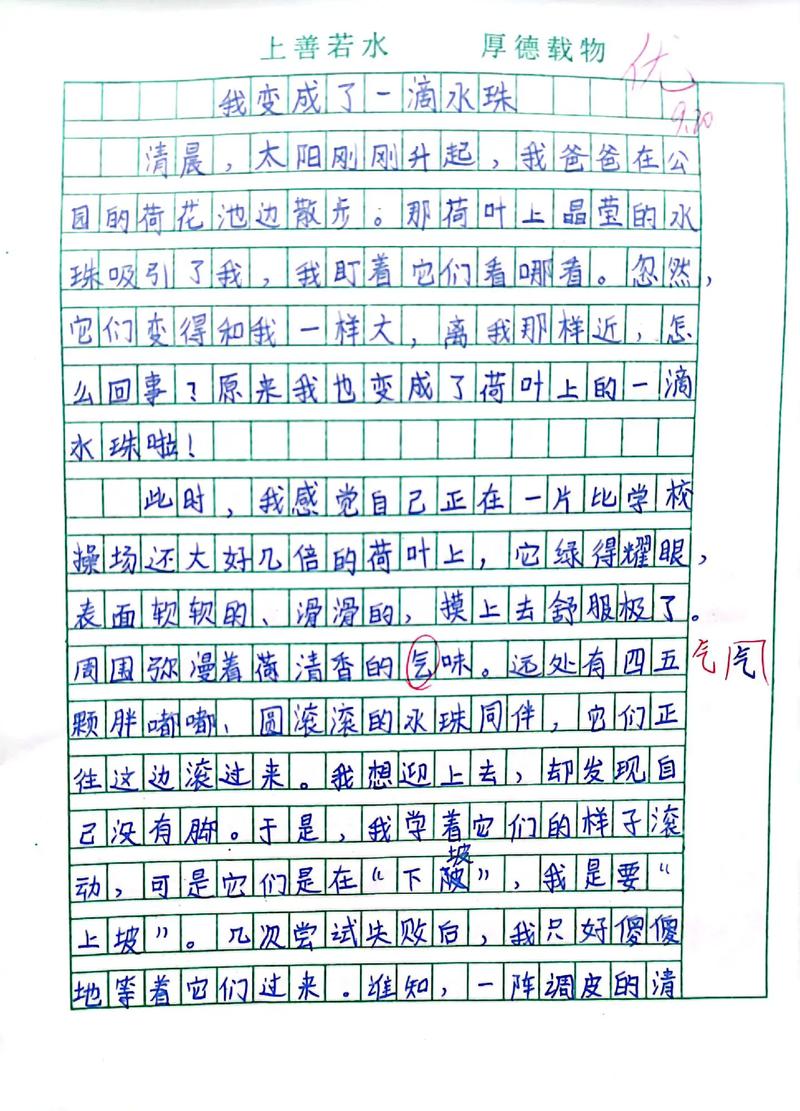 上善若水 厚德载物
优
9.20
我变成了一滴水珠
清晨，太阳刚刚升起，我爸爸在公
园的荷花池边散步。那荷叶上晶莹的水
珠吸引了我，我盯着它们看哪看。忽然，
它们变得和我一样大，离我那样近，怎
么回事？原来我也变成了荷叶上的一滴
水珠啦！
此时，我感觉自己正在一片比学校
操场还大好几倍的荷叶上，它绿得耀眼，
表面软软的、滑滑的，摸上去舒服极了。
周围弥漫着荷清香的气味。远处有四五 气 气
颗胖嘟嘟、圆滚滚的水珠同伴，它们正
往这边滚过来。我想迎上去，却发现自
己没有脚。于是，我学着它们的样子滚
动，可是它们是在“下坡”，我是要“
上坡”。几次尝试失败后，我只好傻傻
地等着它们过来。谁知，一阵调皮的清